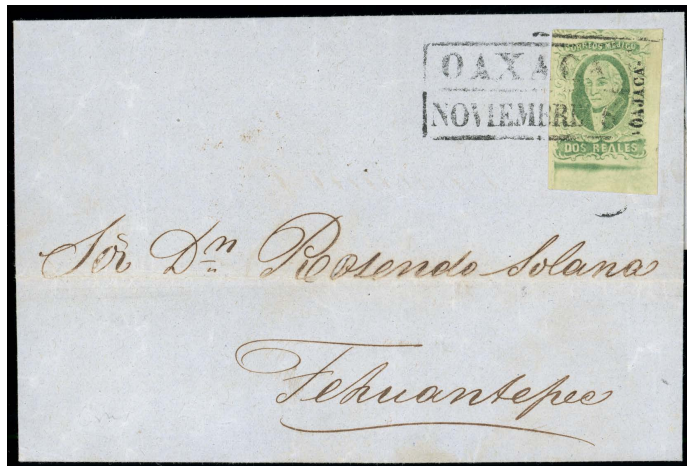 OAXACA
NOVIEMBRE
CORREOS MEJICO
OAJACA
DOS REALES
Sor Dn Rosendo Solana
Tehuantepec